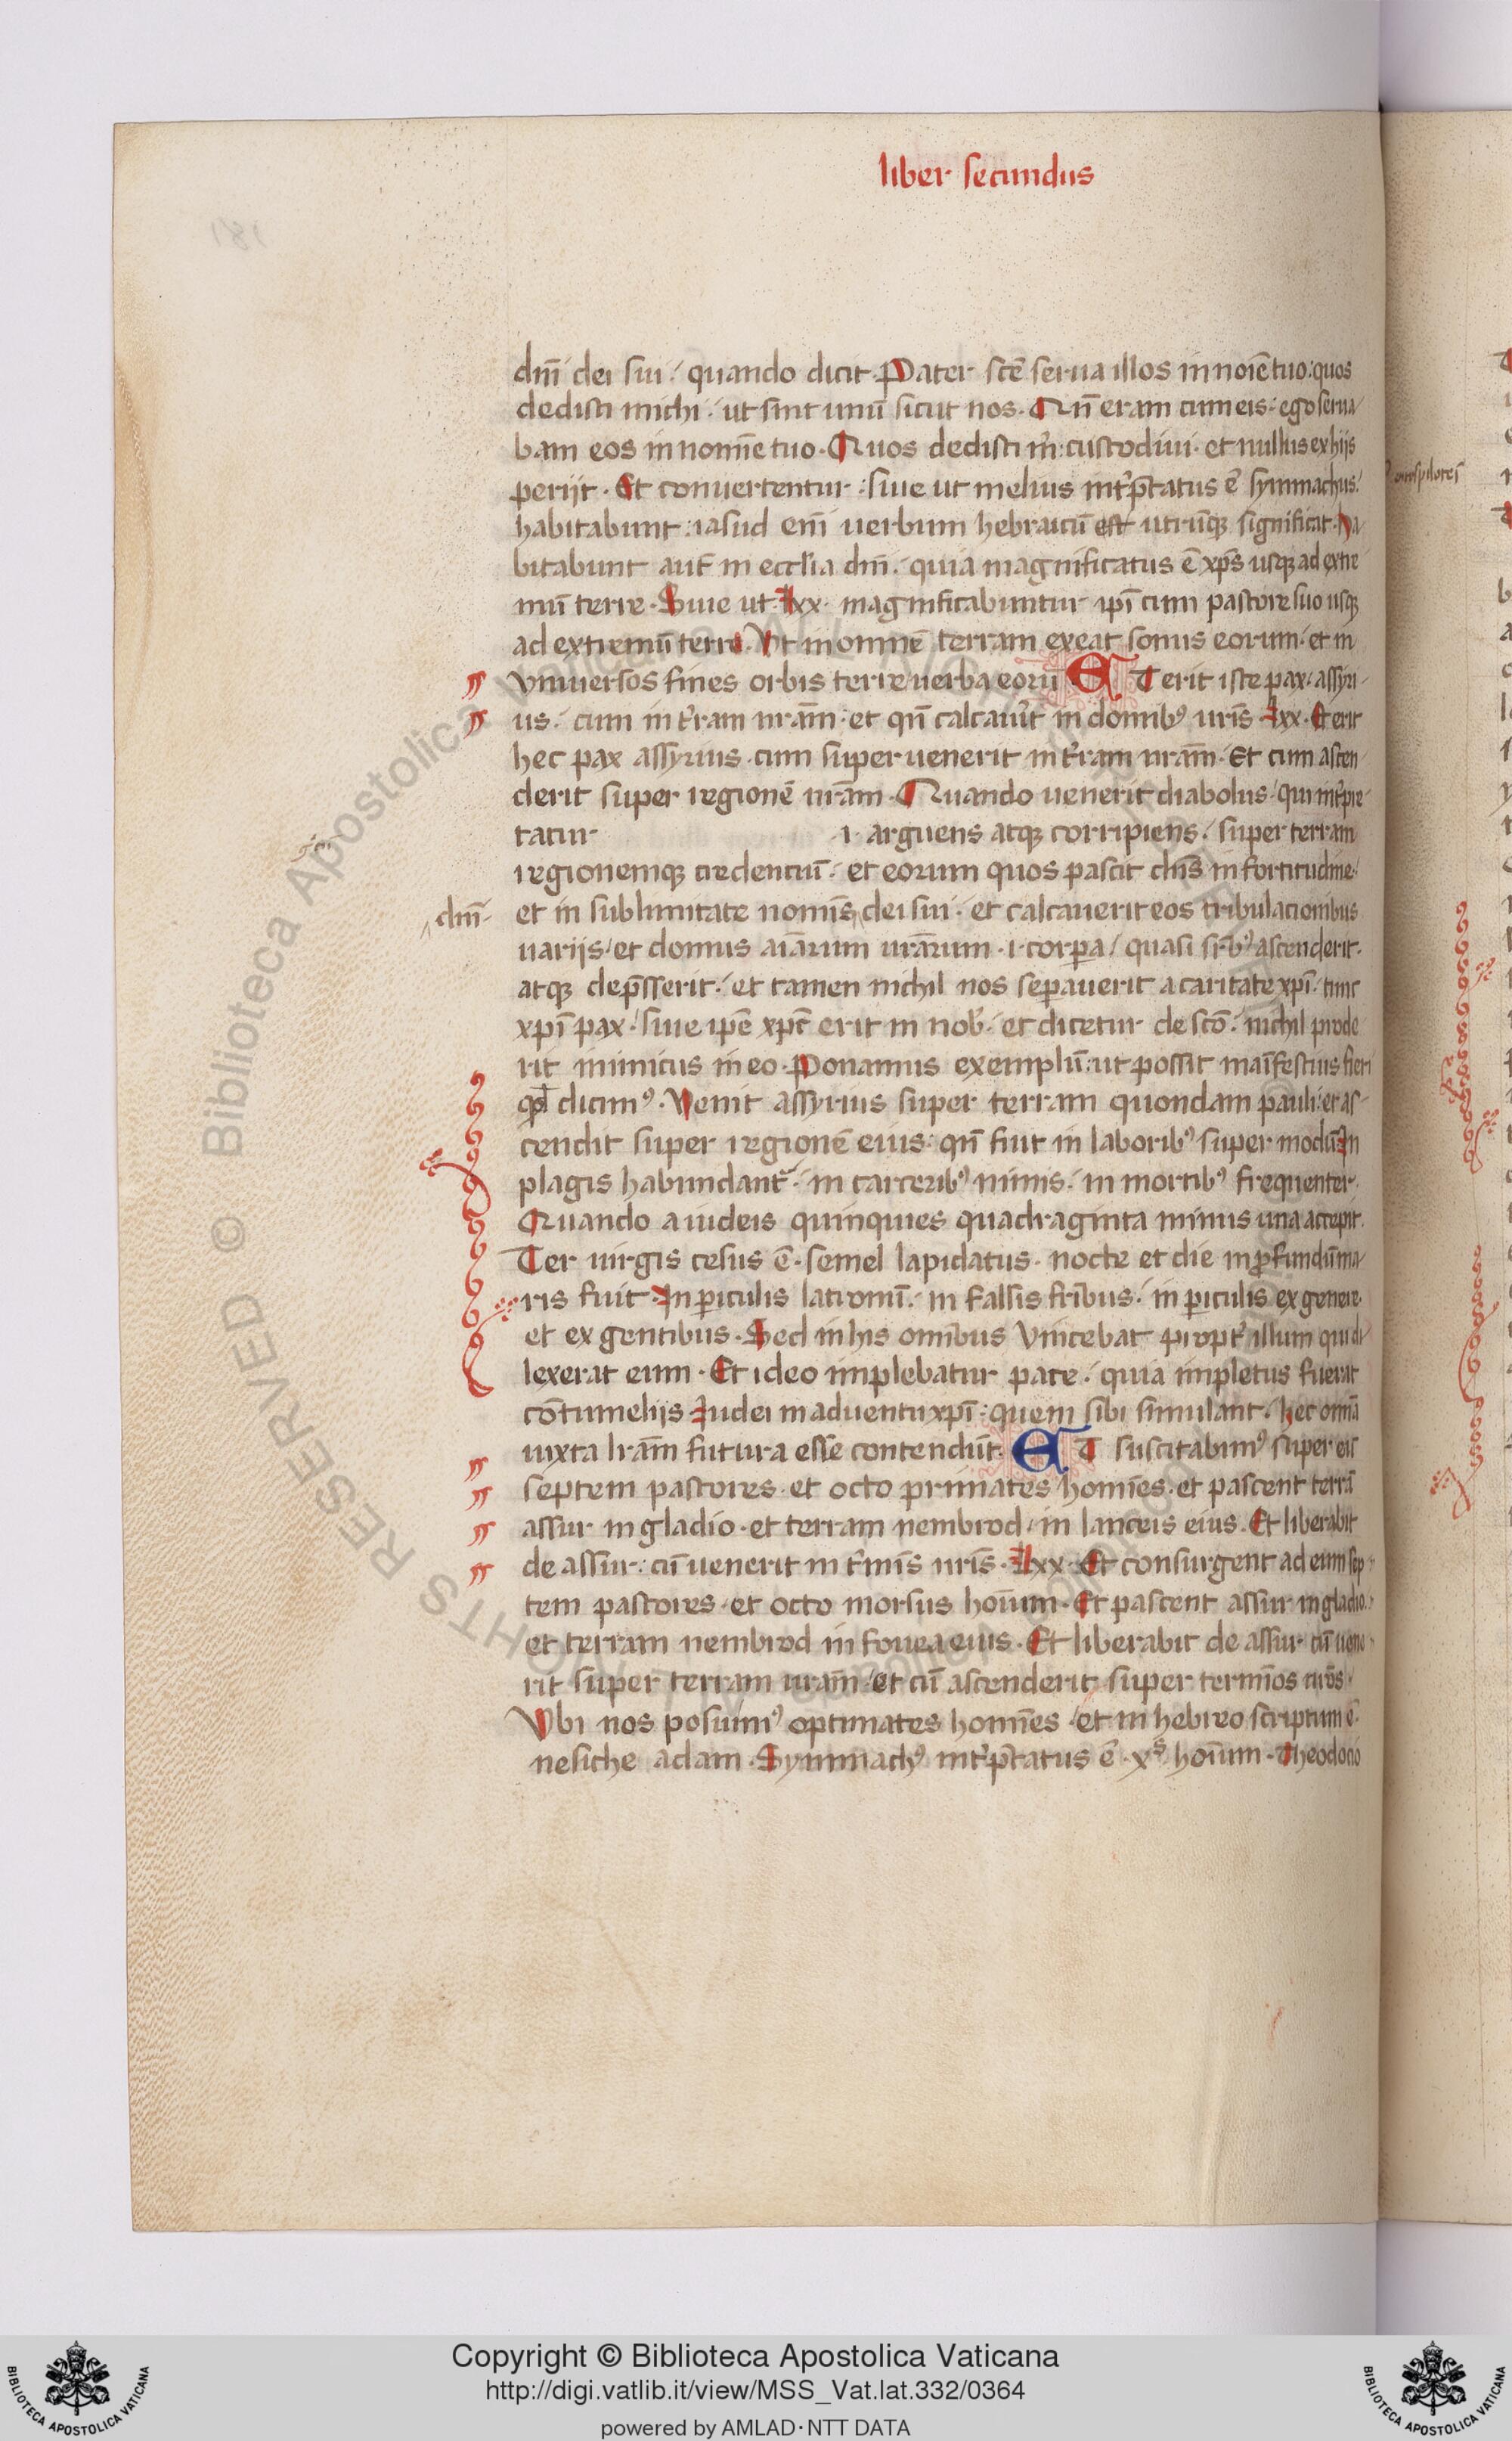 liber secundus
dñi dei sui / quando dicit. Pater scẽ serua illos in noĩe tuo: quos
dedisti michi / ut sint unũ sicut nos. Qñ eram cum eis: ego serua
bam eos in nomĩe tuo. Quos dedisti m̃: custodiui. et nullus ex hijs
perijt. Et conuertentur: siue ut melius int̃p̃tatus ẽ symmachus.
habitabunt: iasub eñi uerbum hebraicũ est utrũq; significat. Ha
bitabunt aut̃ in eccl̃ia dñi. quia magnificatus ẽ xp̃s usq; ad extre
mũ terre. Siue ut. lxx. magnificabuntur ip̃i cum pastore suo usq;
ad extremũ terre. Vt in omnẽ terram exeat sonus eorum. et in
vniuersos fines orbis terre uerba eorũ ET erit iste pax / assyri
us. cum in t̃ram nr̃am. et qñ calcau̾it in domib⁹ nr̃is. lxx. Et erit
hec pax assyrius. cum superuenerit in t̃ram nr̃am. Et cum ascen
derit super regionẽ nr̃am. Quando uenerit diabolus / qui int̃pre
tatur .i. arguens atq; corripiens. super terram
regionemq; credentiũ. et eorum quos pascit dñs in fortitudine.
dñi
et in sublimitate nomĩs dei sui. et calcauerit eos tribulationibus
uarijs / et domus aĩarum nr̃arum .i. corpa / quasi sr̃b⁹ ascenderit.
atq; dep̃sserit. et tamen nichil nos sepauerit a caritate xpĩ. tunc
xpĩ pax. siue ip̃e xp̃c erit in nob̾. et dicetur de sc̃o. nichil prode
rit inimicus in eo. Ponamus exemplũ: ut possit maĩfestius fieri
qđ dicim⁹. Venit assyrius super terram quondam pauli: et as
cendit super regionẽ eius: qñ fuit in laborib⁹ super modũ. In
plagis habundant̾. in carcerib⁹ nimis. in mortib⁹ frequenter.
Quando a iudeis quinquies quadraginta minus una accepit.
Ter uirgis cesus ẽ. semel lapidatus. nocte et die in pfundũ ma
ris fuit. In piculis latronũ. in falsis fr̃ibus. in piculis ex genere.
et ex gentibus. Sed in hijs omĩbus vincebat propt̾ illum qui di
lexerat eum. Et ideo implebatur pace. quia impletus fuerat
cõtumelijs. Iudei in aduentu xpĩ: quem sibi simulant. hec omĩa
iuxta lr̃am futura esse contendũt. ET suscitabim⁹ super eũ
septem pastores. et octo primates homĩes. et pascent terrã
assur in gladio. et terram nembrod / in lanceis eius. Et liberabit
de assur: cũ uenerit in t̃mĩs nr̃is. lxx. Et consurgent ad eum sep
tem pastores. et octo morsus hoĩum. Et pascent assur in gladio.
et terram nembrod in fouea eius. Et liberabit de assur. cũ uene
rit super terram nr̃am / et cũ ascenderit super termĩos nr̃os.
Vbi nos posuim⁹ optimates homĩes / et in hebreo scriptum ẽ.
nesiche adam. Symmach⁹ int̃p̃tatus ẽ. xp̃s hoĩum. Theodotio
Copyright © Biblioteca Apostolica Vaticana
http://digi.vatlib.it/view/MSS_Vat.lat.332/0364
powered by AMLAD·NTT DATA